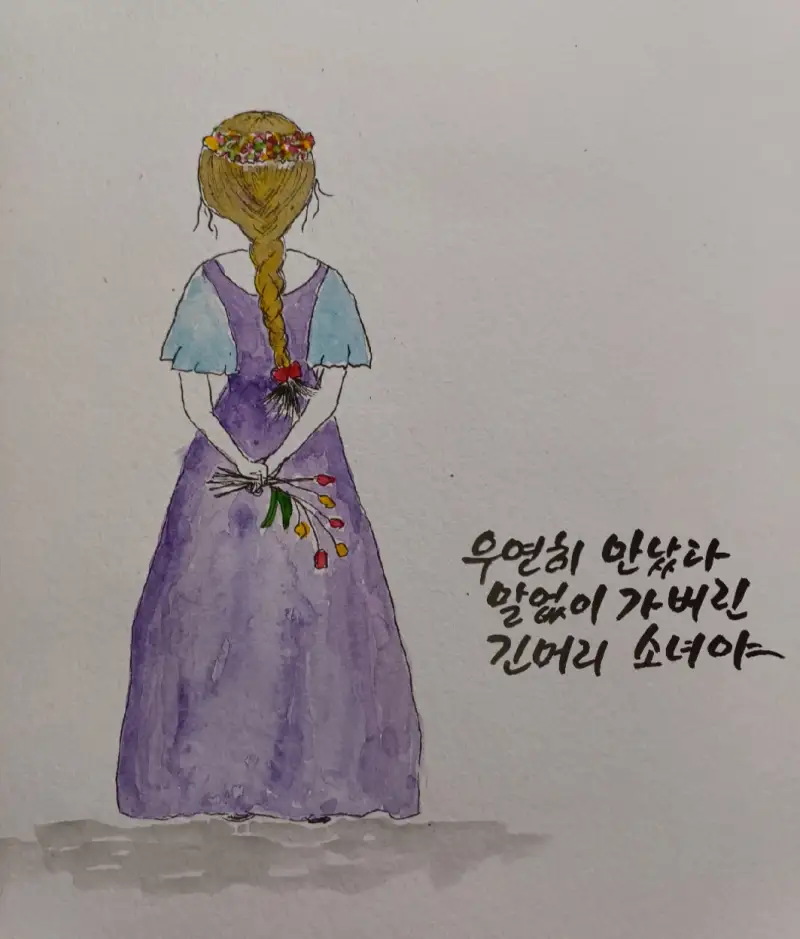 우연히 만났다
말없이 가버린
긴머리 소녀야